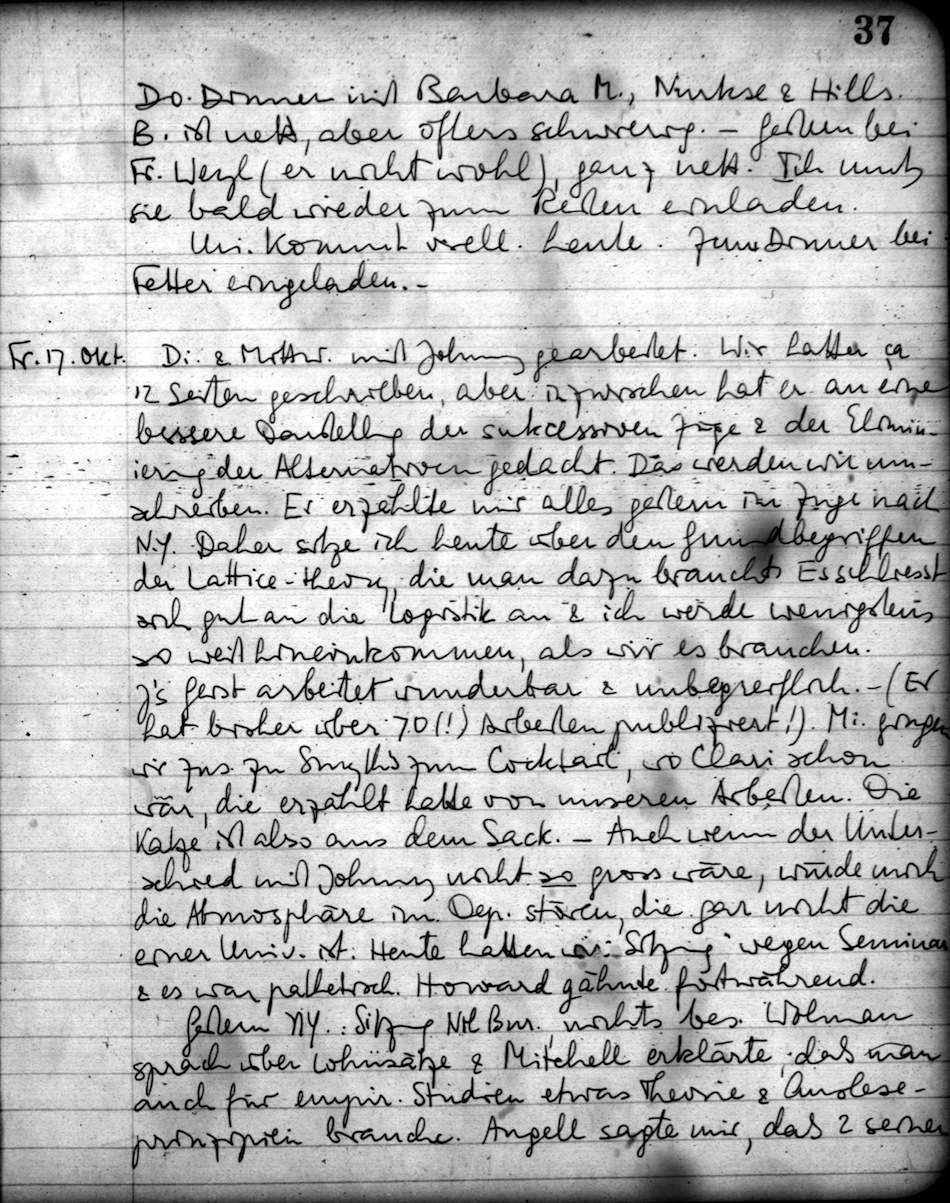 37
Do. Dinner mit Barbara M., Nurkse & Hills.
B. ist nett, aber öfters schwierig. – Gestern bei
Fr. Weyl (er nicht wohl), ganz nett. Ich muss
sie bald wieder zum Reiten einladen.
Uni. kommt viell. heute. Zum Dinner bei
Fetter eingeladen. –
Fr. 17. Okt. Di. & Mittw. mit Johnny gearbeitet. Wir hatten ca
12 Seiten geschrieben, aber inzwischen hat er an eine
bessere Darstellg der sukcessiven Züge & der Elimin-
ierung der Alternativen gedacht. Das werden wir um-
schreiben. Er erzählte mir alles gestern im Zuge nach
N.Y. Daher sitze ich heute über den Grundbegriffen
der Lattice-theory, die man dazu braucht. Es schliesst
sich gut an die Logistik an & ich werde wenigstens
so weit hineinkommen, als wir es brauchen.
J's Geist arbeitet wunderbar & unbegreiflich. – (Er
hat bisher über 70 (!) Arbeiten publiziert!). Mi. gingen
wir zus. zu Smyths zum Cocktail, wo Clari schon
war, die erzählt hatte von unseren Arbeiten. Die
Katze ist also aus dem Sack. – Auch wenn der Unter-
schied mit Johnny nicht so gross wäre, würde mich
die Atmosphäre im Dep. stören, die gar nicht die
einer Univ. ist. Heute hatten wir Sitzung wegen Seminar
& es war pathetisch. Howard gähnte fortwährend.
Gestern NY. : Sitzg Ntl Bur. nichts bes. Wolman
sprach über Lohnsätze & Mitchell erklärte, dass man
auch für empir. Studien etwas Theorie & Auslese-
prinzipien brauche. Angell sagte mir, dass 2 seiner